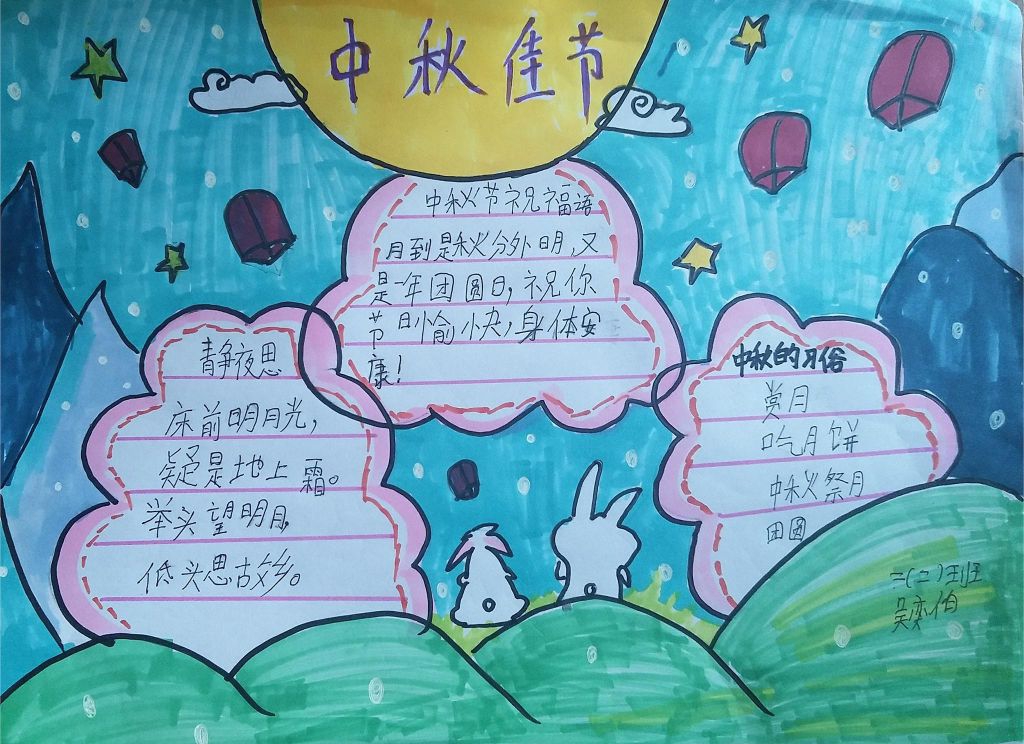 中秋佳节
中秋节祝福语
月到是秋分外明,又
是一年团圆日,祝你
节日愉快,身体安
康!
静夜思
床前明月光,
疑是地上霜。
举头望明月,
低头思故乡。
中秋的习俗
赏月
吃月饼
中秋祭月
团圆
二(二)班
吴奕伯